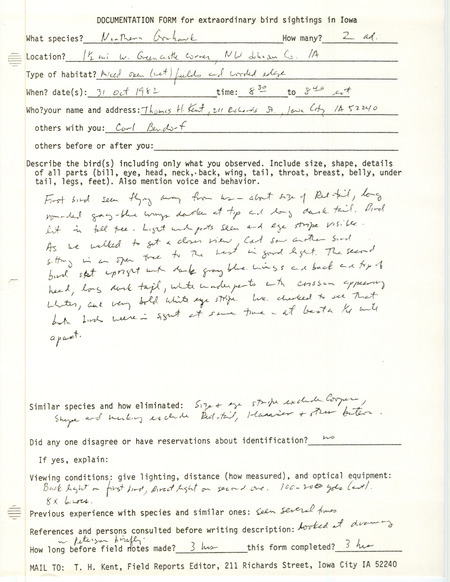 DOCUMENTATION FORM for extraordinary bird sightings in Iowa
What species? Northern Goshawk How many? 2 ad.
Location? 1½ mi W. Greencastle corner, NW Johnson Co. IA
Type of habitat? Mixed open (wet) fields and wooded edge
When? date(s): 31 Oct 1982 time: 8 30 to 8 40 est
Who? your name and address: Thomas H. Kent, 211 Richards St., Iowa City IA 52240
others with you: Carl Bendorf
others before or after you:
Describe the bird(s) including only what you observed. Include size, shape, details
of all parts (bill, eye, head, neck, back, wing, tail, throat, breast, belly, under
tail, legs, feet). Also mention voice and behavior.
First bird seen flying away from us - about size of Red-tail, long
rounded gray-blue wings darker at tip and long dark tail. Bird
lit in tall tree. Light underparts seen and eye stripe visible.
As we walked to get a closer view, Carl saw another bird
sitting in an open tree to the west in good light. The second
bird sat upright with dark gray blue wings and back and top of
head, long dark tail, white underparts with crissum appearing
whiter, and very bold white eye stripe. We checked to see that
both birds were in sight at same time - at least a ¼ mile
apart.
Similar species and how eliminated: Size & eye stripe exclude Coopers,
shape and marking exclude Red-tail, Harrier & other buteos.
Did any one disagree or have reservations about identification? no
If yes, explain:
Viewing conditions: give lighting, distance (how measured), and optical equipment:
Back light on first bird, direct light on second one. 100-200 yds (est).
8x binos.
Previous experience with species and similar ones: seen several times
References and persons consulted before writing description: looked at drawing
in Peterson briefly.
How long before field notes made? 3 hrs this form completed? 3 hrs
MAIL TO: T. H. Kent, Field Reports Editor, 211 Richards Street, Iowa City IA 52240